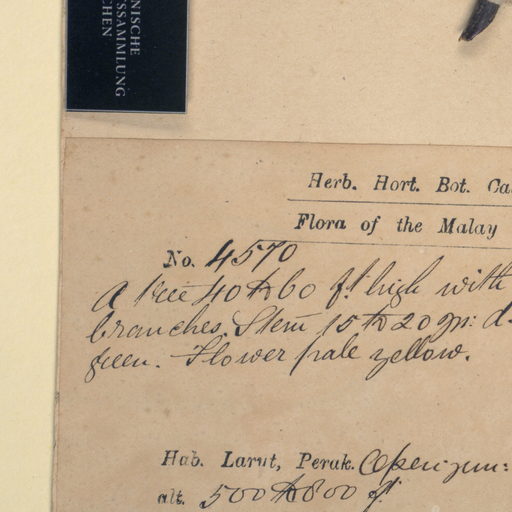 NISCHE
SSAMMLUNG
CHEN
Herb. Hort. Bot. Ca
Flora of the Malay
No. 4570
A tree 40 to 60 ft high with
branches. Stem 15 to 20 in: d.
green. Flower pale yellow.
Hab. Larut, Perak. Open
alt. 500 to 800 ft